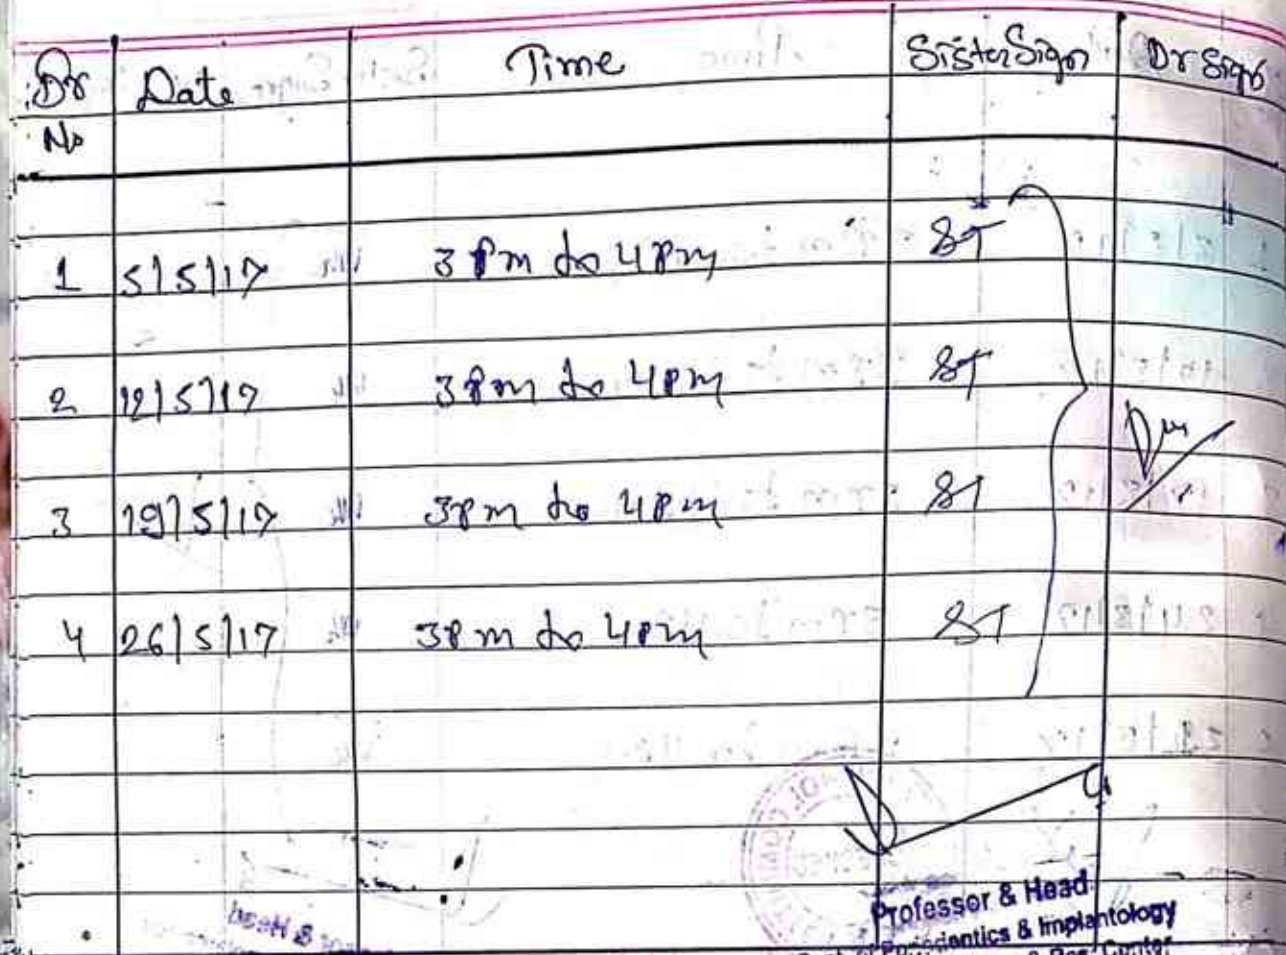 Dr Date Time Sister Sign Dr Sign
No
1 5/5/17 3 Pm to 4 Pm ST
2 12/5/17 3 Pm to 4 Pm ST
3 19/5/17 3 Pm to 4 Pm ST
4 26/5/17 3 Pm to 4 Pm ST
Professor & Head
Periodontics & Implantology